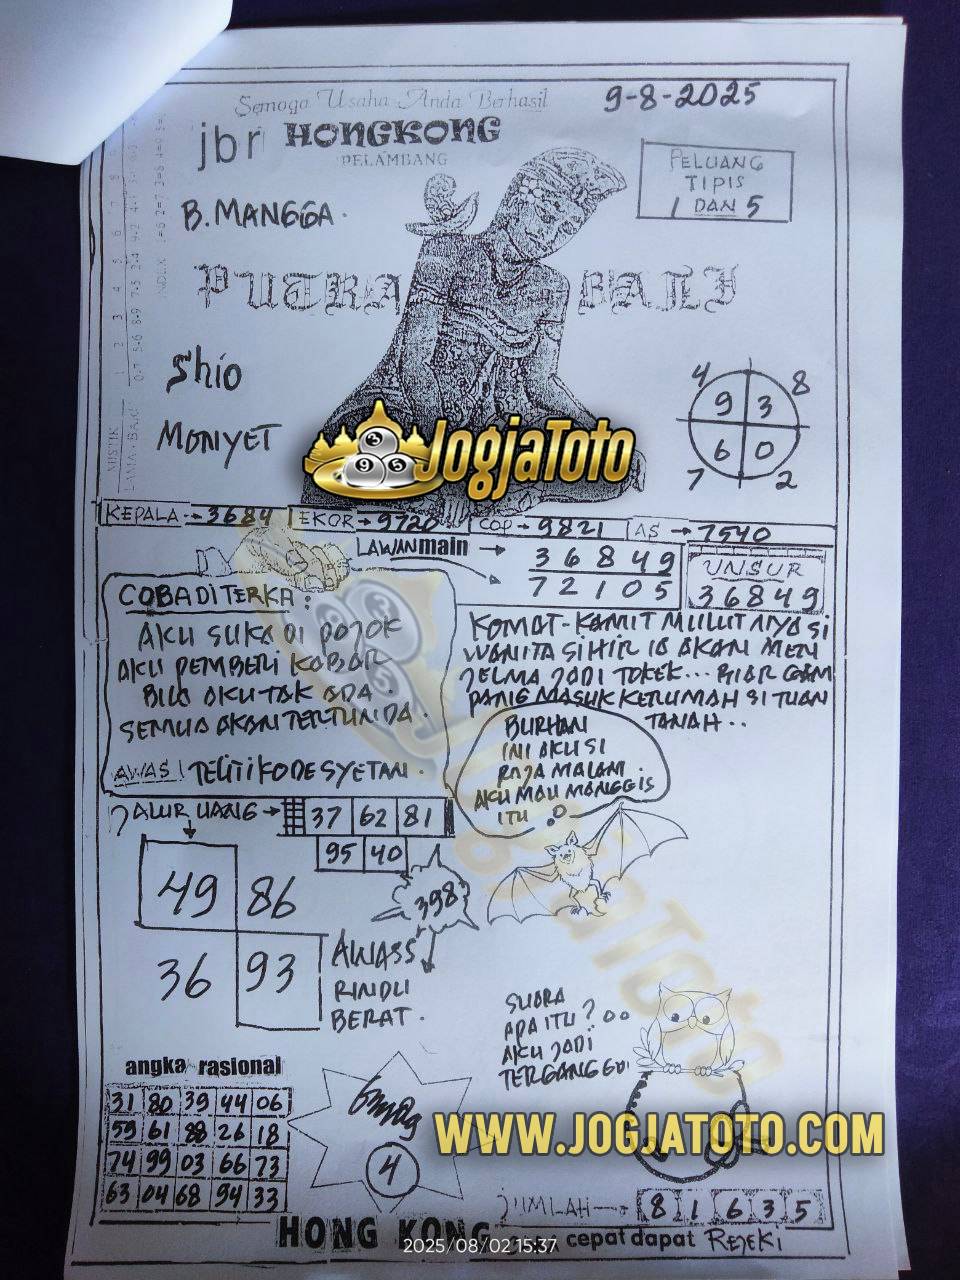 Semoga Usaha Anda Berhasil
9-8-2025
jbr HONGKONG
PELAMBANG
PELUANG
TIPIS
1 DAN 5
B. MANGGA.
PUTRA BALI
Shio
MONYET
4 8
9 3
6 0
7 2
JogjaToto
KEPALA → 3684 EKOR → 9720 COP → 9821 AS → 7540
LAWAN main → 36849
72105
UNSUR
36849
COBA DI TERKA:
AKU SUKA DI POJOK
AKU PEMBERI KABAR
BILA AKU TAK ADA.
SEMUA AKAN TERTUNDA.
AWAS! TELITI KODE SYETAN.
KOMAT-KAMIT MULUTNYA SI
WANITA SIHIR IA AKAN MEN
JELMA JADI TOKEK... BIAR GAM
PANG MASUK KERUMAH SI TUAN
TANAH..
BURHAN
INI AKU SI
RAJA MALAM.
AKU MAU MANGGIS
ITU.
JALUR UANG → 37 62 81
95 40
49 86
36 93
398
AWASS
RINDU
BERAT.
SUARA
APA ITU?
AKU JADI
TERGANGGU.
angka rasional
31 80 39 44 06
59 61 88 26 18
74 99 03 66 73
63 04 68 94 33
4
WWW.JOGJATOTO.COM
JUMLAH → 8 1 6 3 5
HONG KONG
cepat dapat REJEKI
2025/08/02 15:37